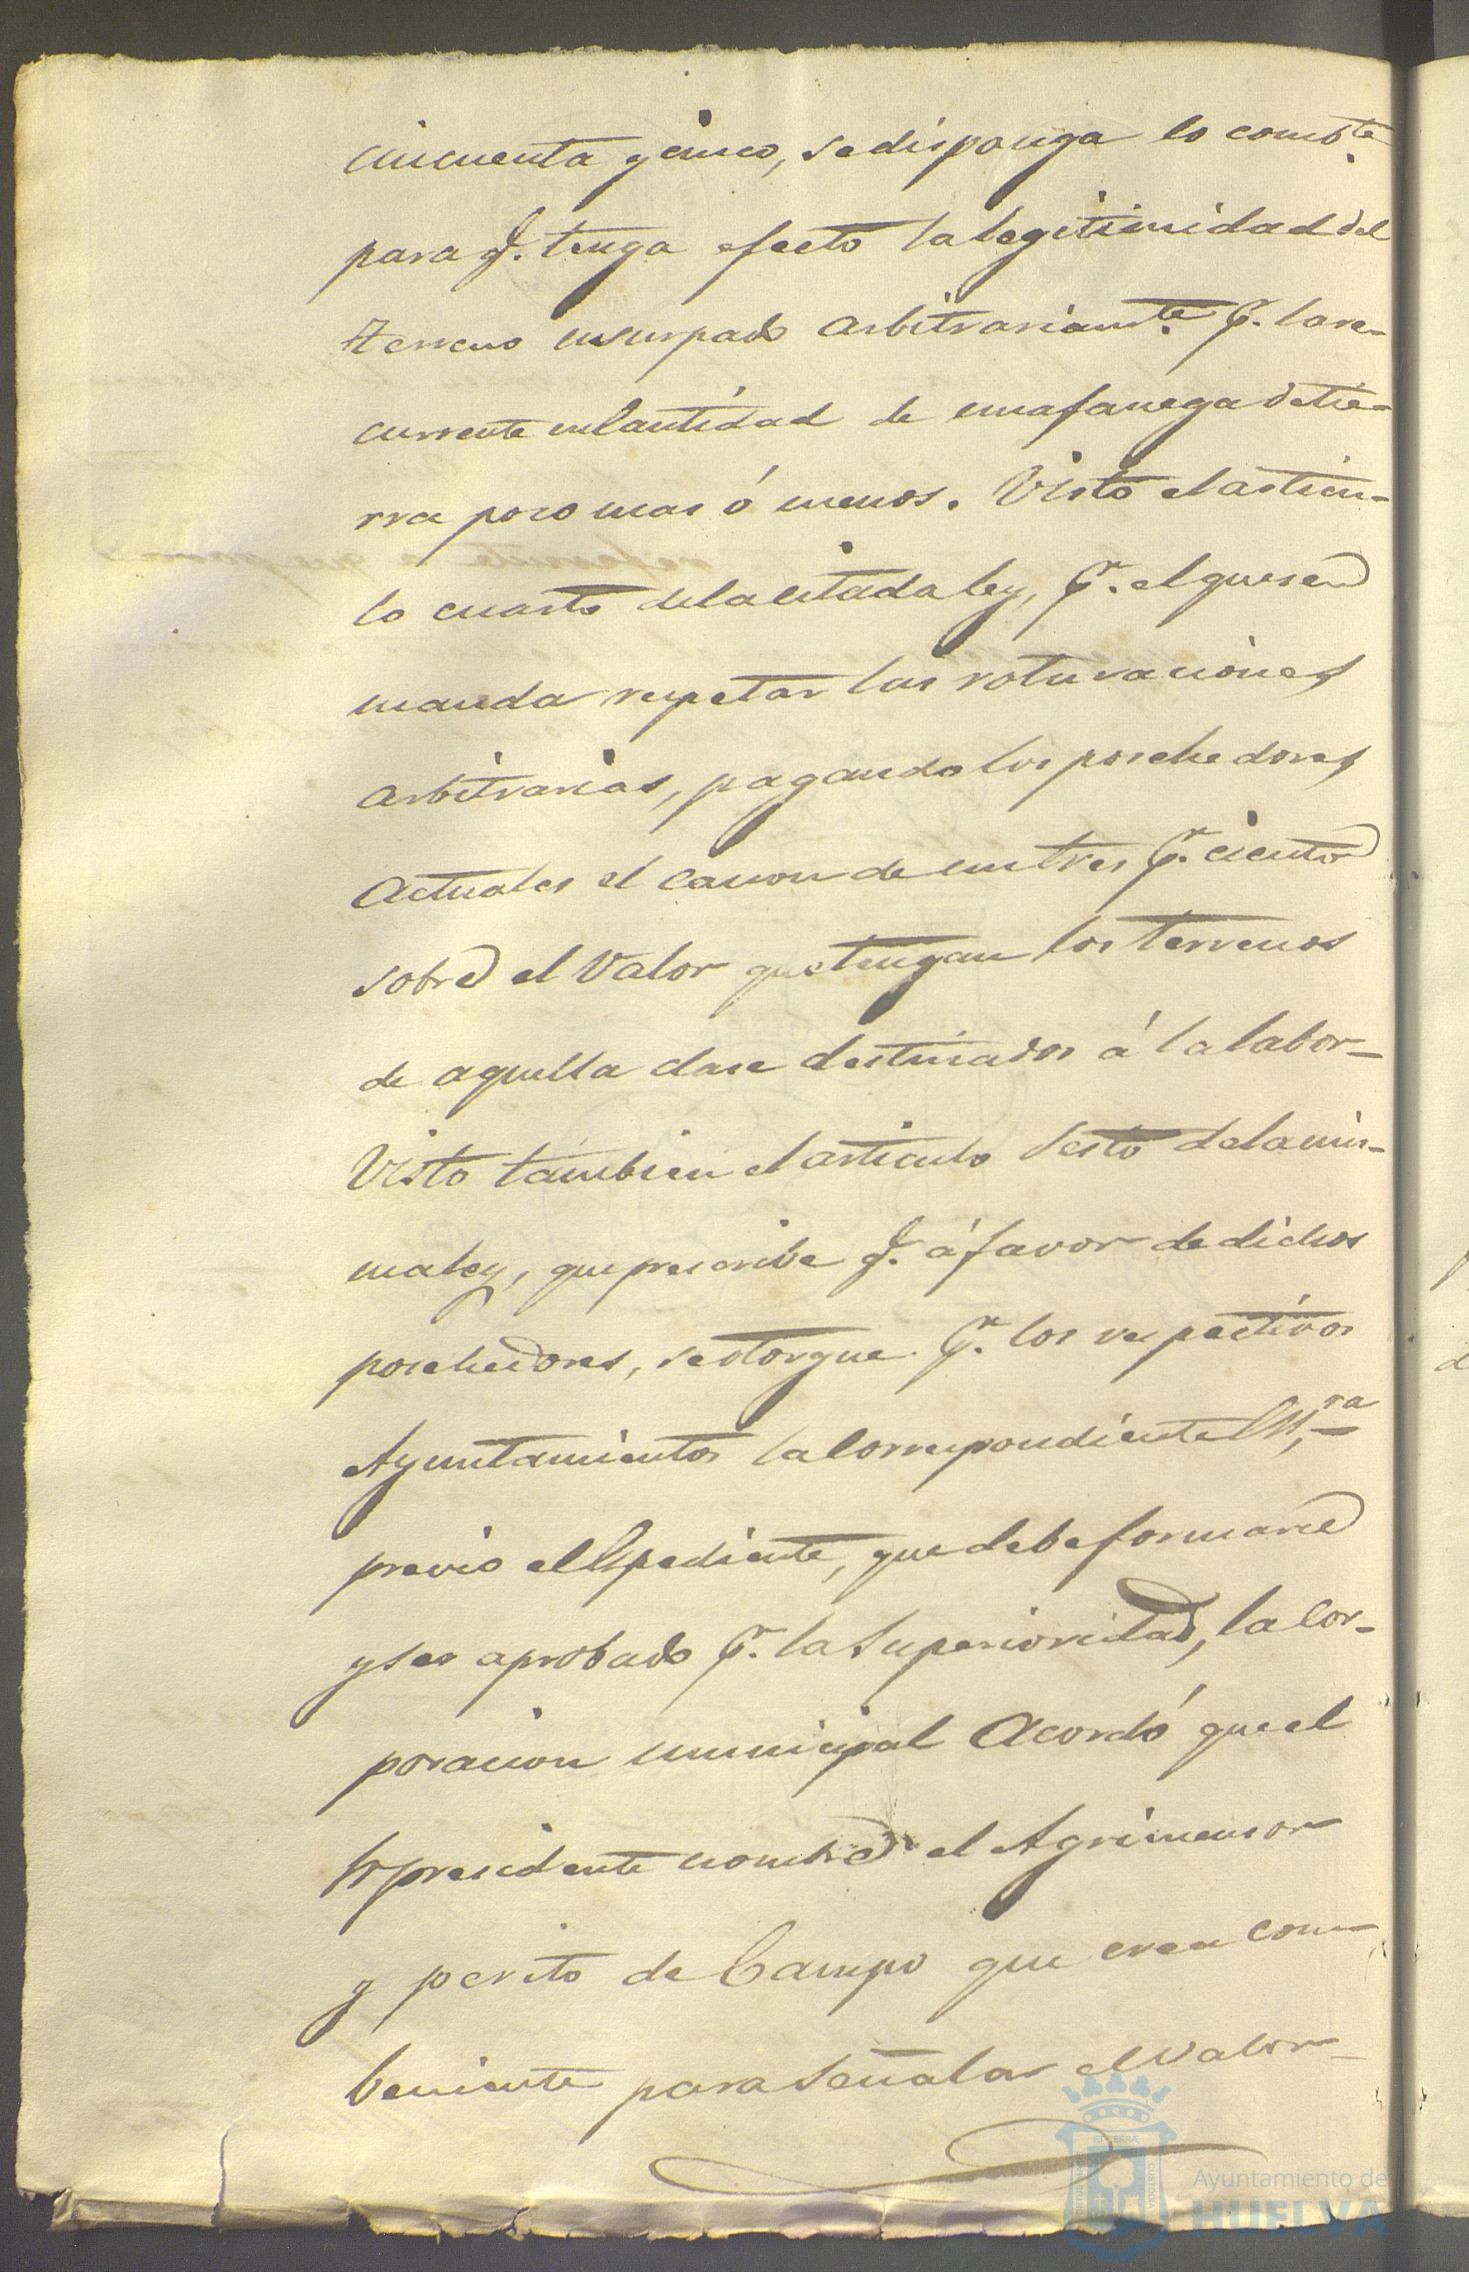 cincuenta y cinco, se disponga lo combte.
para q. tenga efecto la legitimidad del
terreno usurpado arbitrariamte. pr. la re-
currente en Cantidad de una fanega de tie-
rra poco mas ó menos. Visto el artícu-
lo cuarto de la citada ley, pr. el que se
manda respetar las roturaciones
arbitrarias, pagando los posehedores
actuales el canon de un tres pr. ciento
sobre el Valor que tengan los terrenos
de aquella clase destinados á la labor-
Visto tambien el articulo Sesto de la mis-
ma ley, que prescribe q. á favor de dichos
posehedores, se otorgue pr. los respectivos
Ayuntamientos la Correspondiente Essra,
previo el Espediente, que debe formarse
y ser aprobado pr. la Superioridad, la Cor-
poracion municipal Acordó que el
Sr presidente nombre el Agrimensor
y perito de Campo que crea com-
beniente para Señalar el valor
Ayuntamiento de
HUELVA